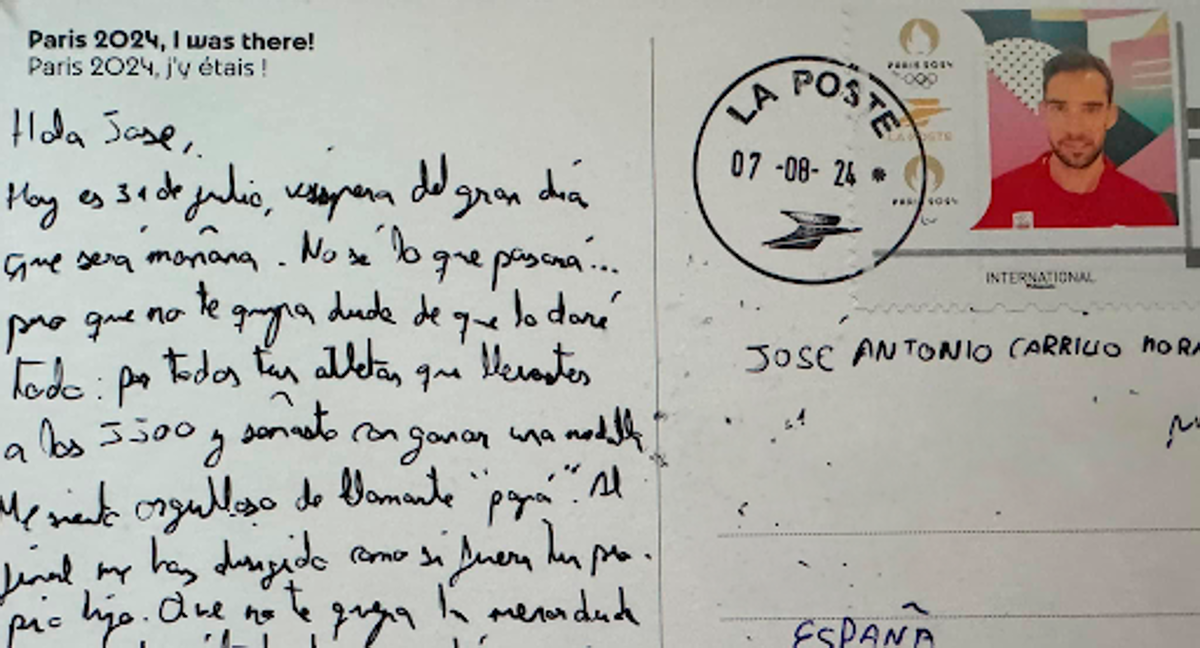 Paris 2024, I was there!
Paris 2024, j'y étais !
Hola Jose,
Hoy es 31 de julio, víspera del gran día
que será mañana. No sé lo que pasará...
pero que no te quepa duda de que lo daré
todo: por todos tus atletas que llevastes
a los JJOO y soñasto con ganar una medalla
Me siento orgulloso de llamarte "papá". Al
final me has dirigido como si fuera tu pro-
pio hijo. Que no te quepa la menor duda
LA POSTE
07-08-24 *
PARIS 2024
LA POSTE
PARIS 2024
INTERNATIONAL
JOSÉ ANTONIO CARRILLO MORA
ESPAÑA